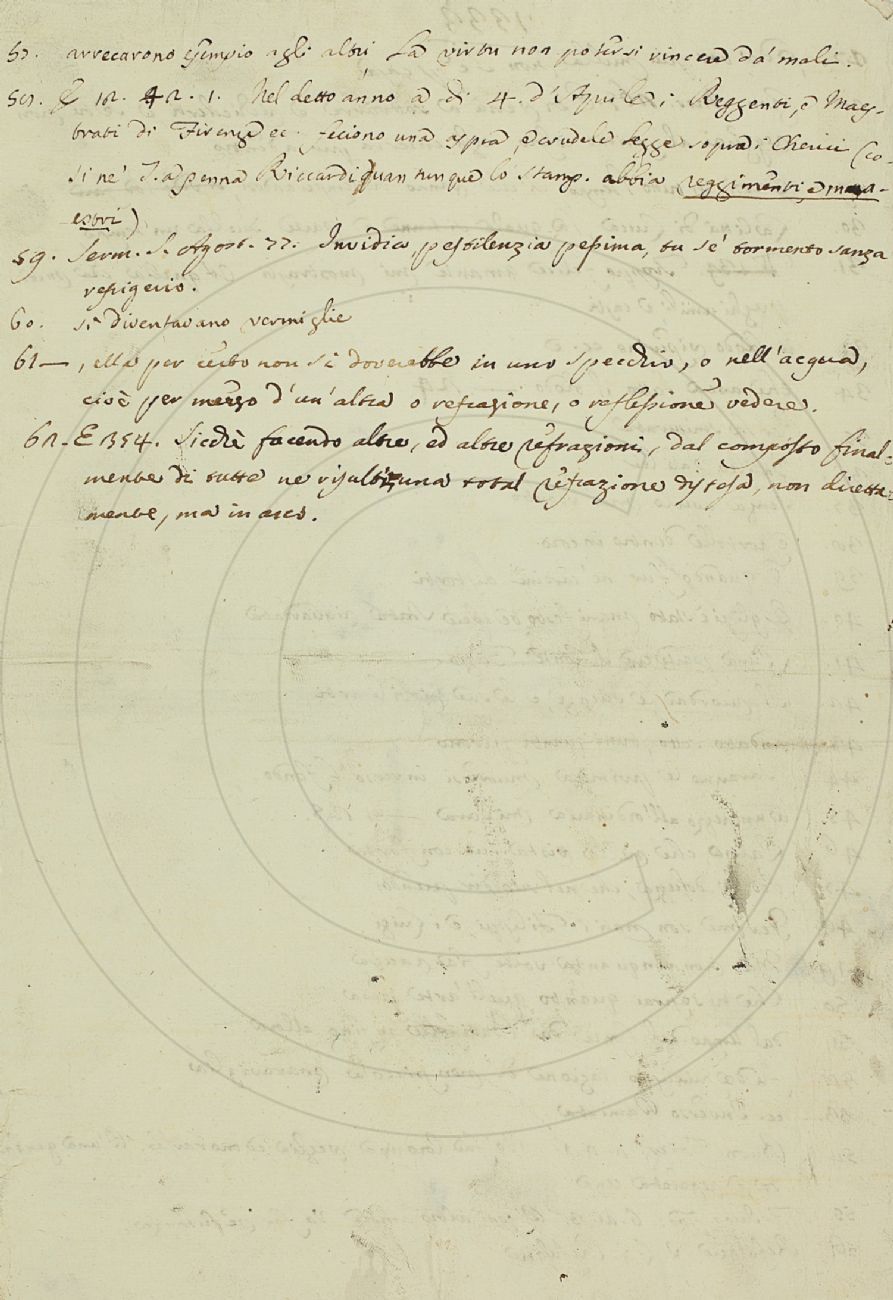 57. arrecarono esempio agli altri La virtù non potersi vincere da' mali.
58. E 12. 42. 1. Nel detto anno a dì 4. d'Aprile i Reggenti, e Mags-
trati di Firenze ec. feciono una aspra, e crudele legge sopra i Cherici (co-
si ne' T. a penna Riccardi quantunque lo stamp. abbia reggimenti e ma-
estri)
59. Serm. S. Agost. 77. Invidia, pestilenzia pessima, tu se' tormento sanza
refrigerio.
60. si diventavano vermiglie
61 —, ella per certo non si doverebbe in uno specchio, o nell'acqua,
cioè per mezzo d'un'altra o refrazione, o reflessione vedere.
62. E 1354. Sicchè facendo altre, ed altre refrazioni, dal composto final-
mente di tutte ne risulti una total refrazione distesa, non diretta-
mente, ma in arco.